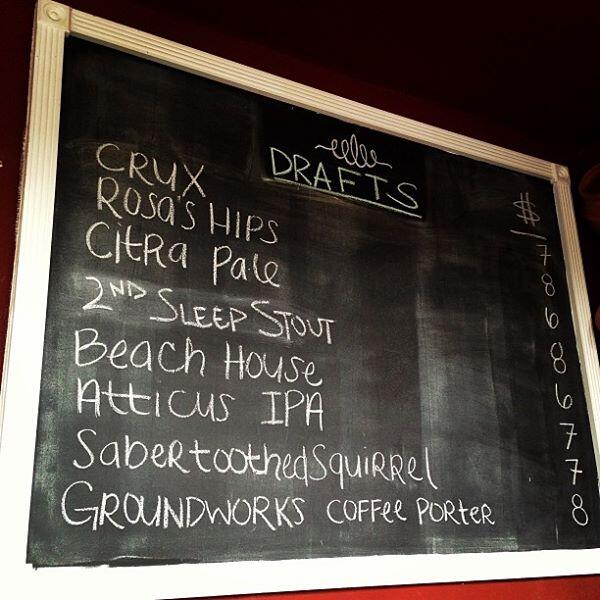 DRAFTS
$
CRUX 7
ROSA'S HIPS 8
CitRa Pale 6
2ND SLEEP STOUT 8
Beach House 6
Atticus IPA 7
SabertoothedSquiRRel 7
GROUNDWORKS COFFee PORTER 8